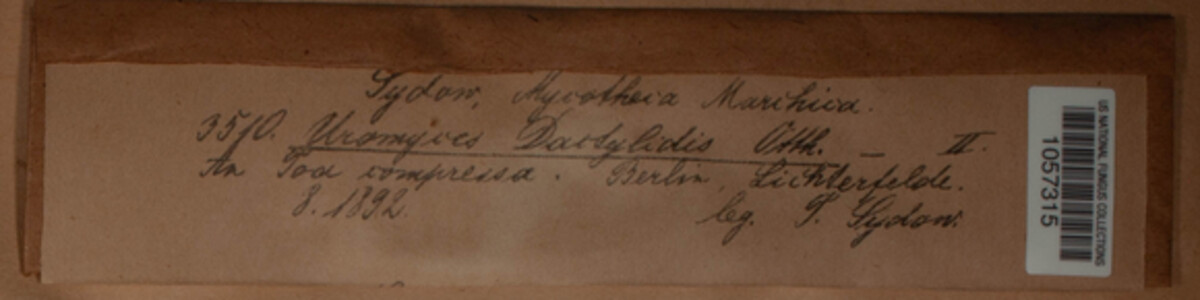 Sydow, Mycotheca Marchica.
3510. Uromyces Dactylidis Otth. — II.
An Poa compressa. Berlin, Lichterfelde.
8. 1892. leg. P. Sydow.
US NATIONAL FUNGUS COLLECTIONS
1057315